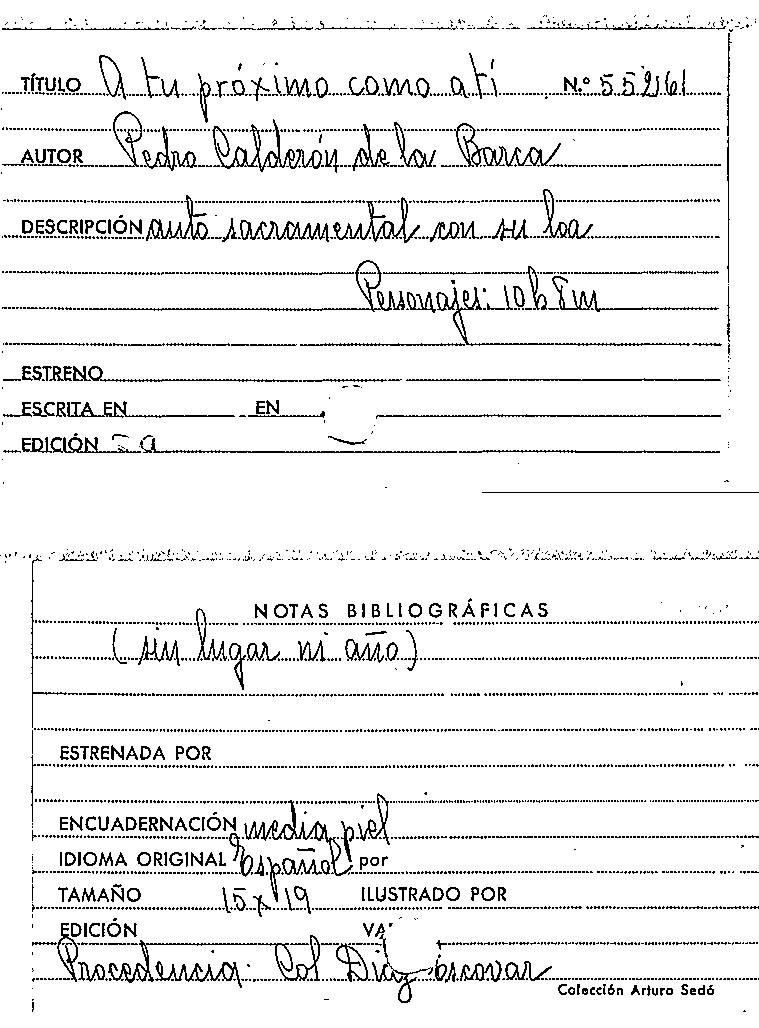 TÍTULO A tu próximo como a ti N.º 55261
AUTOR Pedro Calderón de la Barca
DESCRIPCIÓN auto sacramental con su loa
Personajes: 10 h 8 m
ESTRENO
ESCRITA EN EN
EDICIÓN
NOTAS BIBLIOGRÁFICAS
(sin lugar ni año)
ESTRENADA POR
ENCUADERNACIÓN media piel
IDIOMA ORIGINAL Español por
TAMAÑO 15 x 19 ILUSTRADO POR
EDICIÓN
Procedencia: Col Diaz Escovar
Colección Arturo Sedó